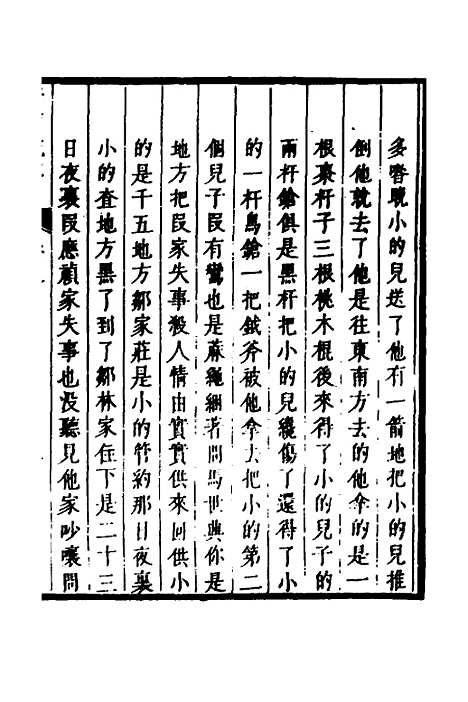 多昝暁小的兒送了他有一箭地把小的兒推
倒他就去了他是往東南方去的他拿的是一
根棗杆子三根桃木棍後來得了小的兒子的
兩杆鎗俱是黑杆把小的兒纔傷了還得了小
的一杆鳥鎗一把鉞斧被他拿去把小的第二
個兒子段有鸞也是蔴繩綑著問馬世興你是
地方把段家失事殺人情由實實供來回供小
的是千五地方鄒家莊是小的管約那日夜裏
小的査地方黑了到了鄒林家住下是二十三
日夜裏段應禎家失事也没聽見他家吵嚷問